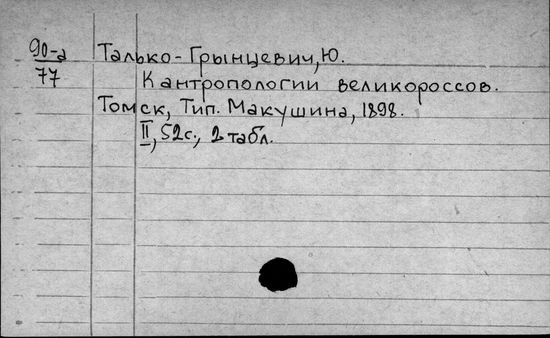 90-а
77
Талько-Грынцевич, Ю.
К антропологии великороссов.
Томск, Тип. Макушина, 1898.
II, 52с., 2 табл.